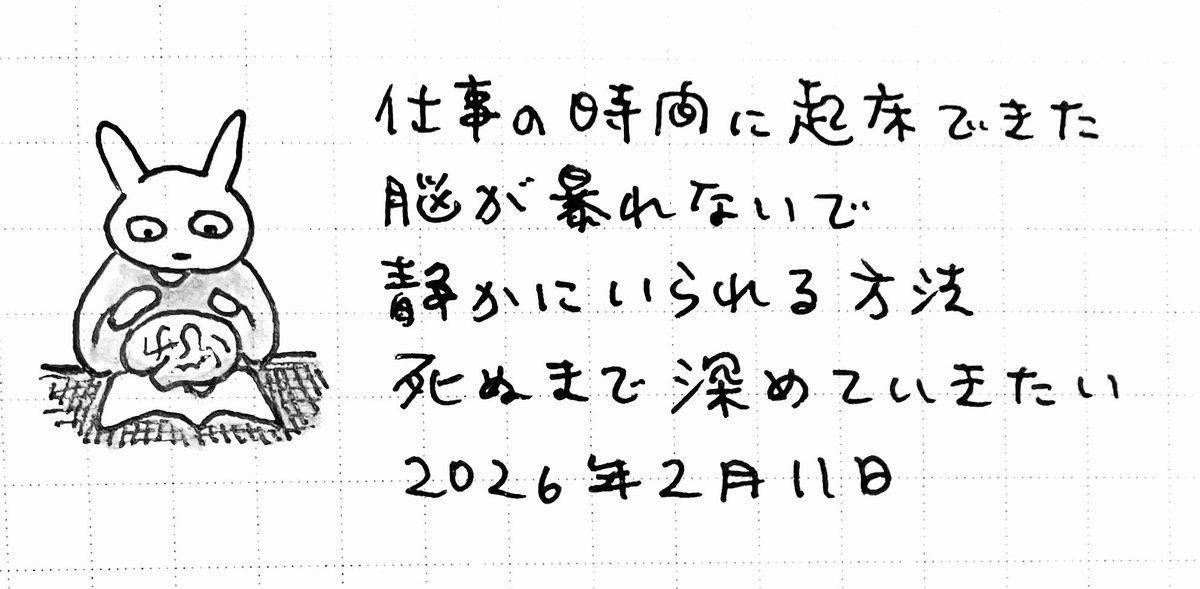 仕事の時間に起床できた
脳が暴れないで
静かにいられる方法
死ぬまで深めていきたい
2026年2月11日